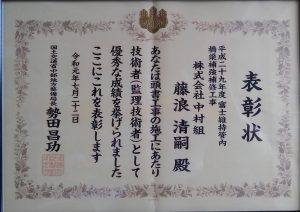 表彰状
平成二十九年度 富士維持管内
橋梁補強補修工事
株式会社中村組
藤浪 清嗣 殿
あなたは頭書工事の施工にあたり
技術者(監理技術者)として
優秀な成績を挙げられました
ここにこれを表彰します
令和元年七月二十二日
国土交通省中部地方整備局長 勢田昌功